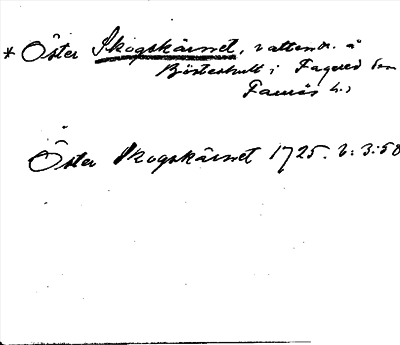 * Öster Skogskärnet, vattendr. å
Bösterhult i Fagered sn
Faurås h.,
Öster Skogskärnet 1725. b: 3:58